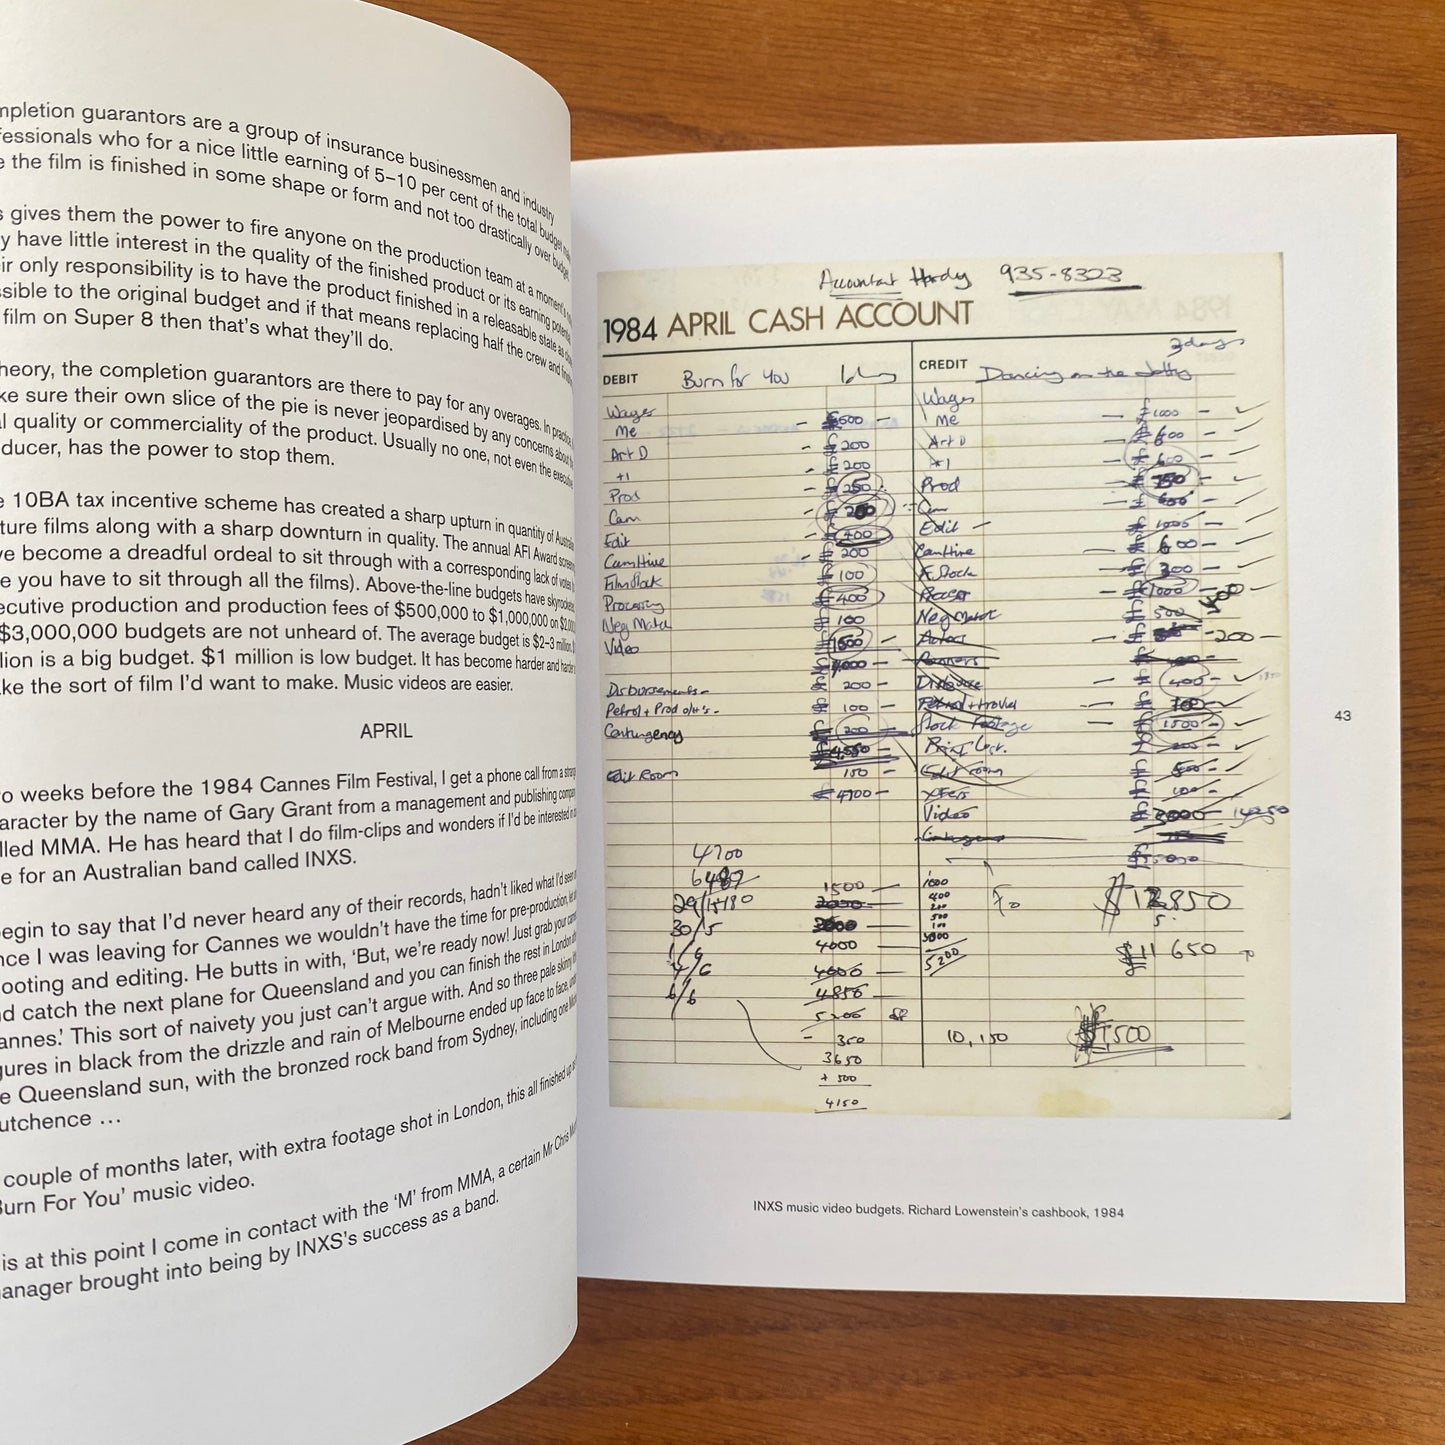 mpletion guarantors are a group of insurance businessmen and industry
fessionals who for a nice little earning of 5–10 per cent of the total budget
e the film is finished in some shape or form and not too drastically over budget.
s gives them the power to fire anyone on the production team at a moment's
y have little interest in the quality of the finished product or its earning
ir only responsibility is to have the product finished in a releasable state as
sible to the original budget and if that means replacing half the crew and
film on Super 8 then that's what they'll do.
heory, the completion guarantors are there to pay for any overages. In
ke sure their own slice of the pie is never jeopardised by any concerns about
l quality or commerciality of the product. Usually no one, not even the executive
ducer, has the power to stop them.
e 10BA tax incentive scheme has created a sharp upturn in quantity of
ture films along with a sharp downturn in quality. The annual AFI Award
ve become a dreadful ordeal to sit through with a corresponding lack of
e you have to sit through all the films). Above-the-line budgets have
ecutive production and production fees of $500,000 to $1,000,000 on
$3,000,000 budgets are not unheard of. The average budget is $2–3 million.
lion is a big budget. $1 million is low budget. It has become harder and
ke the sort of film I'd want to make. Music videos are easier.
APRIL
o weeks before the 1984 Cannes Film Festival, I get a phone call from a
aracter by the name of Gary Grant from a management and publishing
lled MMA. He has heard that I do film-clips and wonders if I'd be interested in
e for an Australian band called INXS.
egin to say that I'd never heard any of their records, hadn't liked what I'd seen
nce I was leaving for Cannes we wouldn't have the time for pre-production, let
ooting and editing. He butts in with, 'But, we're ready now! Just grab your
nd catch the next plane for Queensland and you can finish the rest in London
annes.' This sort of naivety you just can't argue with. And so three pale skinny
gures in black from the drizzle and rain of Melbourne ended up face to face,
e Queensland sun, with the bronzed rock band from Sydney, including one
utchence ...
couple of months later, with extra footage shot in London, this all finished up
Burn For You' music video.
is at this point I come in contact with the 'M' from MMA, a certain Mr Chris
anager brought into being by INXS's success as a band.
Accountant Hardy 935-8323
1984 APRIL CASH ACCOUNT
3 days
DEBIT Burn for You
CREDIT Dancing on the Jetty
Wages
Me 500
Art D 200
+1 200
Prod 250
Cam 200
Edit 400
Cam Hire 200
Film Stock 100
Processing 400
Neg Match 100
Video 1500
4000
Disbursements 200
Petrol + Prod 100
Contingency 200
4,550
Edit Room 150
4700
4700
6487
29/
30/5
6/6
1500
4000
4850
350
3650
+ 500
4150
Wages
Me 1000
Art D 600
+1 600
Prod
Cam 600
Edit 1000
Cam Hire 600
F. Stock 300
Process 1000
Neg Match 500
Actors 200
Runners
Disburse 400
Petrol + travel 700
Stock Footage 1500
Edit room 500
Xfers 100
Video 3000
1000
400
200
500
100
3000
5200
$11 650
10,150
43
INXS music video budgets. Richard Lowenstein's cashbook, 1984